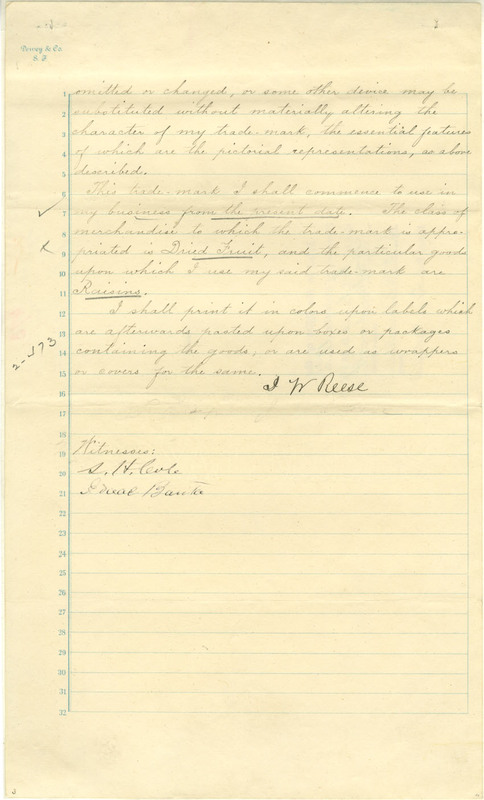 3
Dewey & Co
S. F.
1 omitted or changed, or some other device may be
2 substituted without materially altering the
3 character of my trade-mark, the essential features
4 of which are the pictorial representations, as above
5 described.
6 This trade-mark I shall commence to use in
7 my business from the present date. The class of
8 merchandise to which the trade-mark is appro-
9 priated is Dried Fruit, and the particular goods
10 upon which I use my said trade-mark are
11 Raisins.
12 I shall print it in colors upon labels which
13 are afterwards pasted upon boxes or packages
14 containing the goods, or are used as wrappers
15 or covers for the same.
2-573
16 I W Reese
17
18
19 Witnesses:
20 S. H.
21
22
23
24
25
26
27
28
29
30
31
32